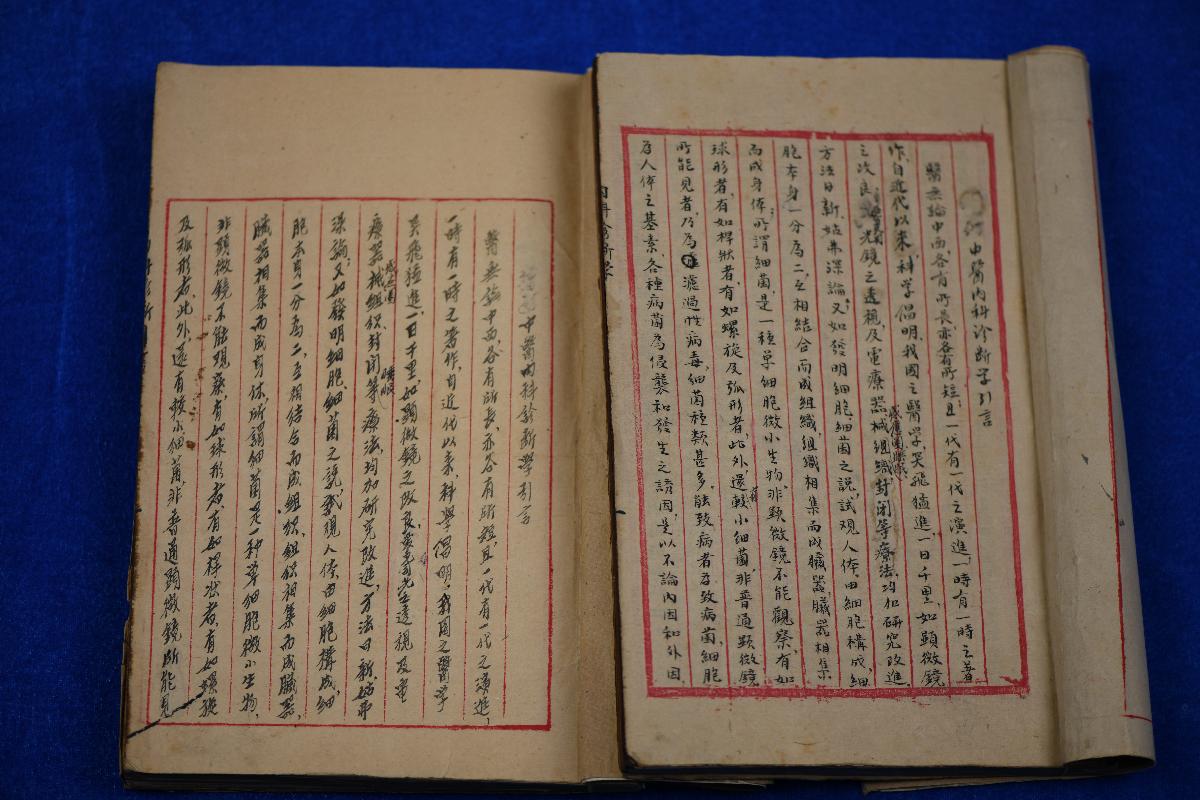 中醫內科诊断学引言
醫無論中西各有所長，亦各有所短，且一代有一代之演進，一時有一時之著
作，自近代以来，科学倡明，我國之醫学，突飛猛進，一日千里，如顯微鏡
之改良，光鏡之透視，及電療器械組織封闭等療法，均加研究改進，
感應圈
方法日新，姑弗深論，又如發明細胞細菌之說，試观人体，由細胞構成，細
胞本身一分為二，互相結合而成組織，組織相集而成臟器，臟器相集
而成身体，所謂細菌，是一種单細胞微小生物，非顯微鏡不能觀察，有如
球形者，有如桿狀者，有如螺旋及弧形者，此外，還有較小細菌，非普通顕微鏡
所能見者，乃為濾過性病毒，細菌種類甚多，能致病者為致病菌，細胞
為人体之基素，各種病菌為侵襲和發生之誘因，是以不論內因和外因，
中醫內科診斷學引言
醫無論中西，各有所長，亦各有所短，且一代有一代之演進，
一時有一時之著作，自近代以来，科學倡明，我國之醫學
突飛猛進，一日千里，如顯微鏡之改良，愛克司光之透視及電
療器械組织，封闭等療法，均加研究改進，方法日新，姑弗
感應圈
睡眠
深論，又如發明細胞細菌之説，我观人体，由細胞構成，細
胞本身一分為二，互相结合而成組织，組织相集而成臟器，
臟器相集而成身体，所謂細菌是一种单細胞微小生物，
非顕微鏡不能观察，有如球形者，有如桿狀者，有如螺旋
及弧形者，此外，還有較小細菌，非普通顕微鏡所能見